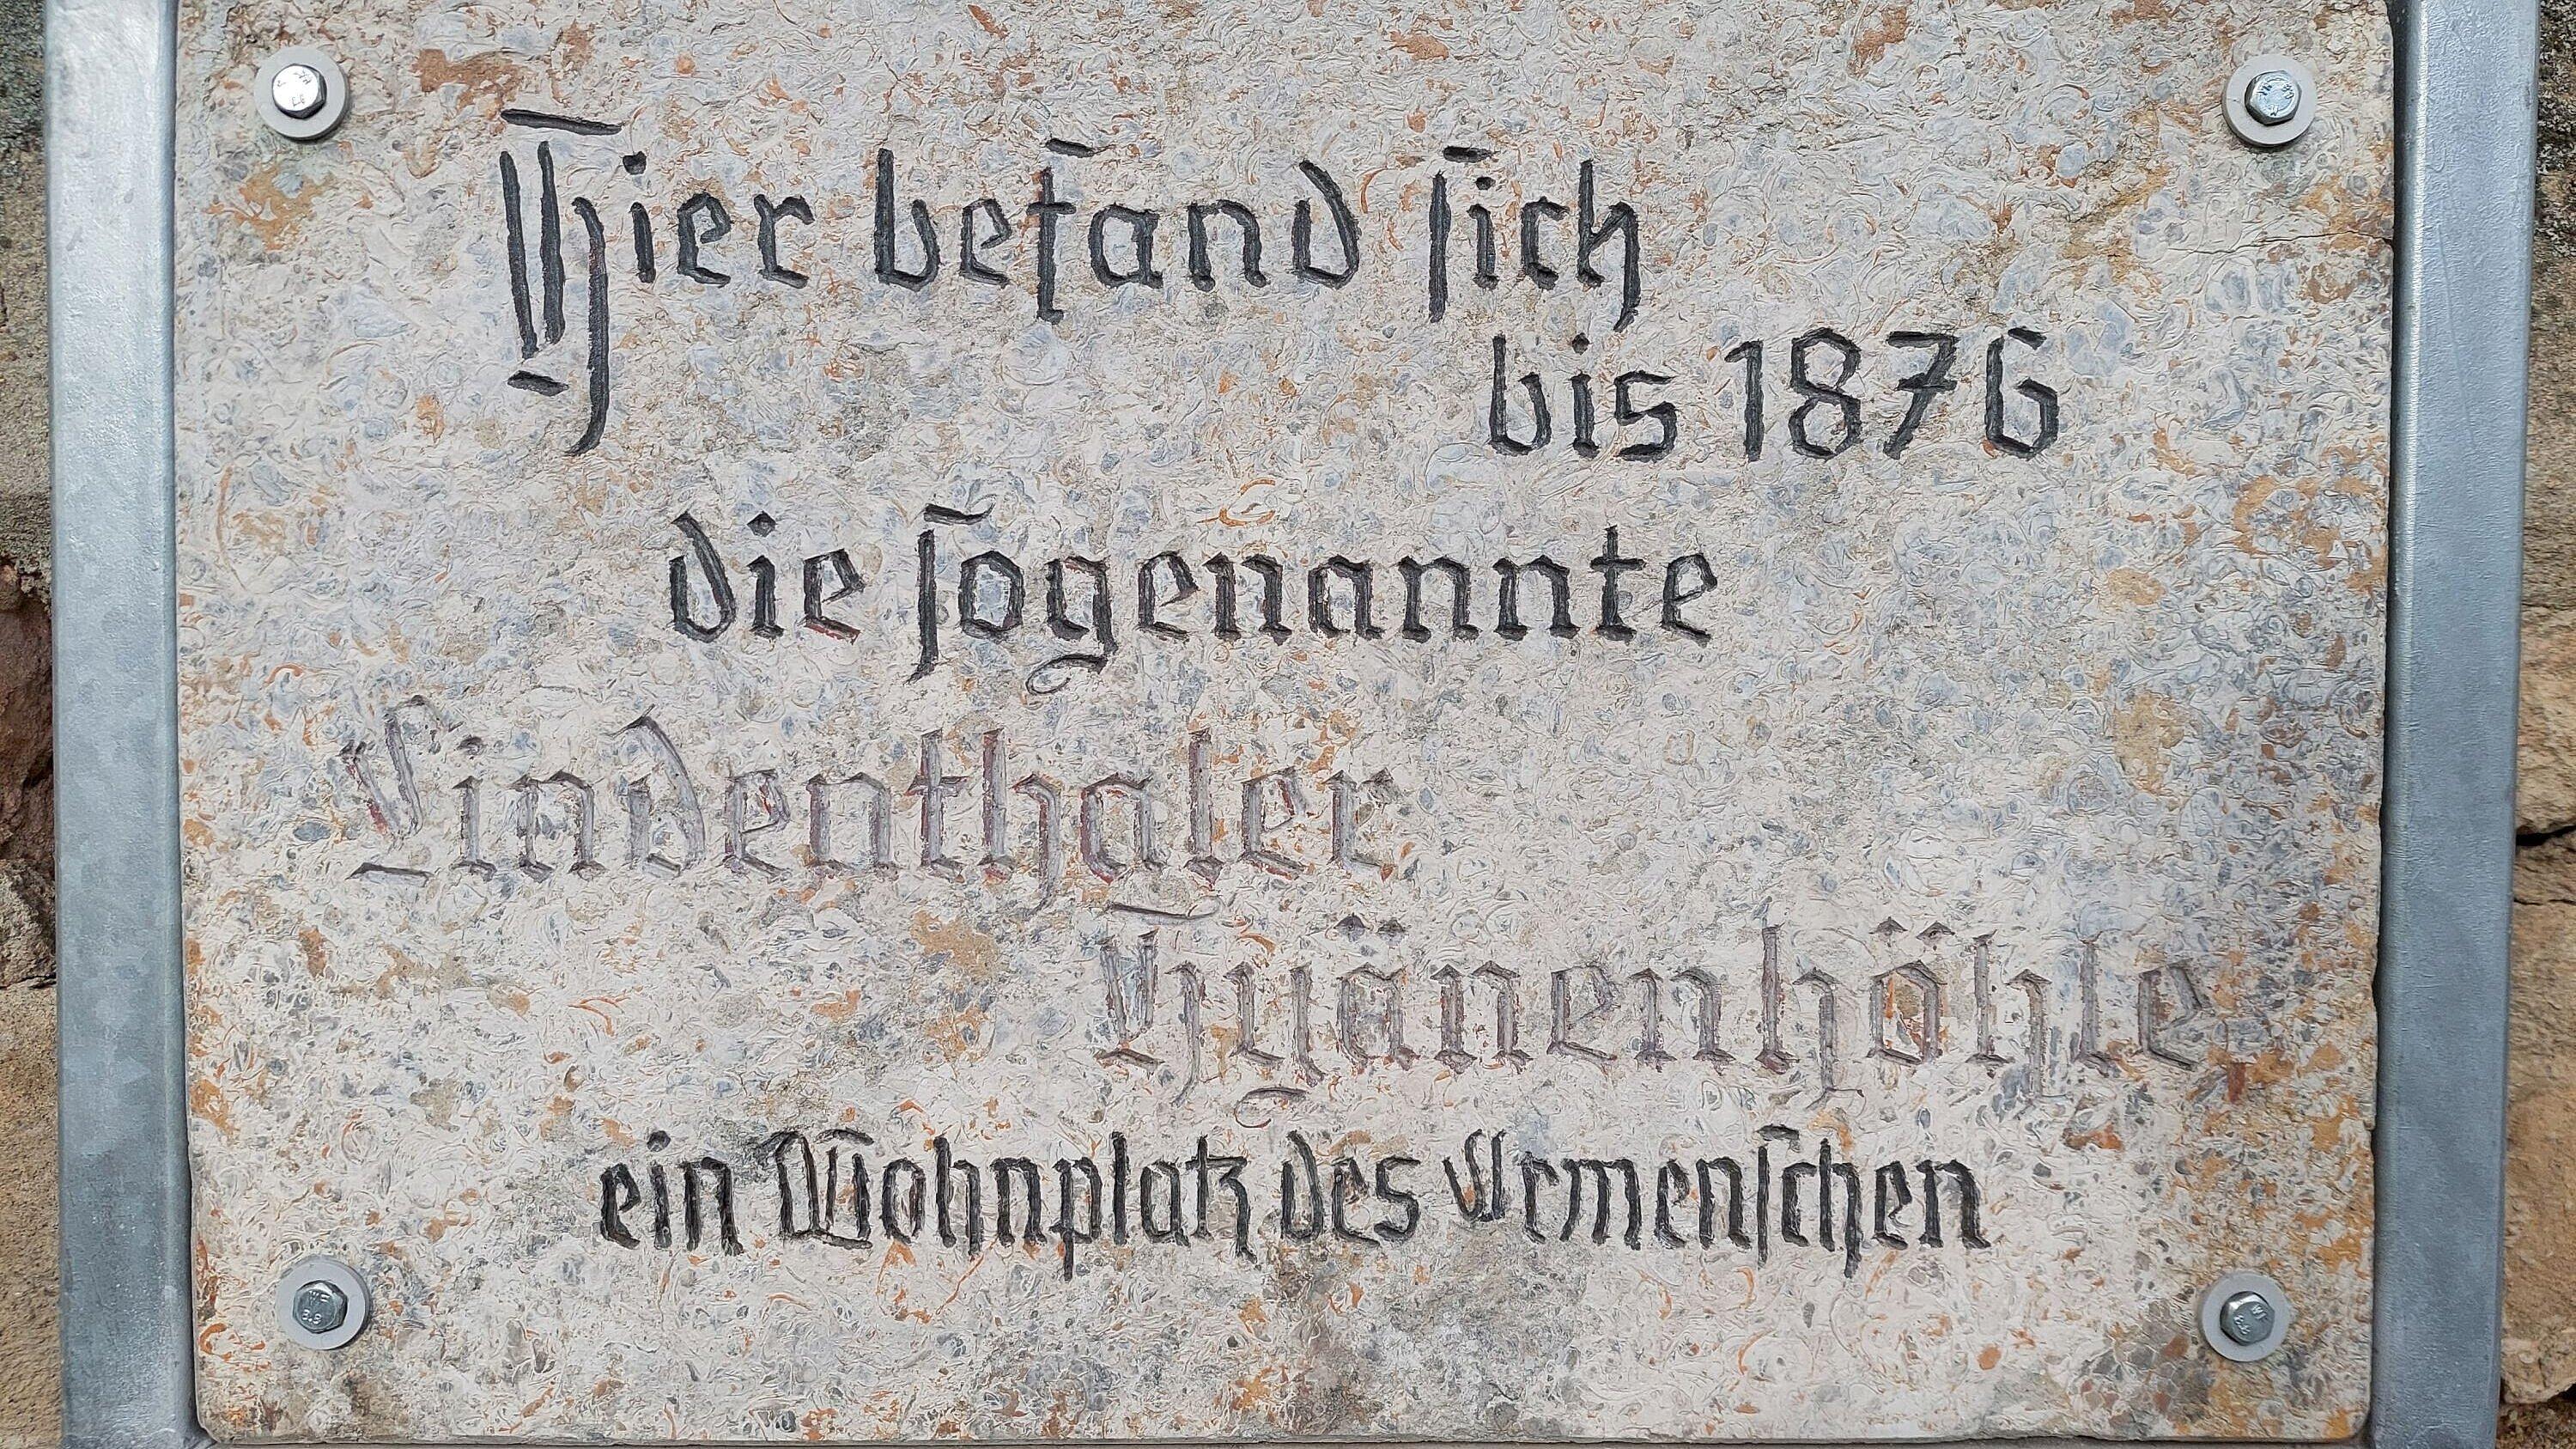 Hier befand ſich
bis 1876
die ſogenannte
Lindenthaler
Hyänenhöhle
ein Wohnplatz des Urmenſchen